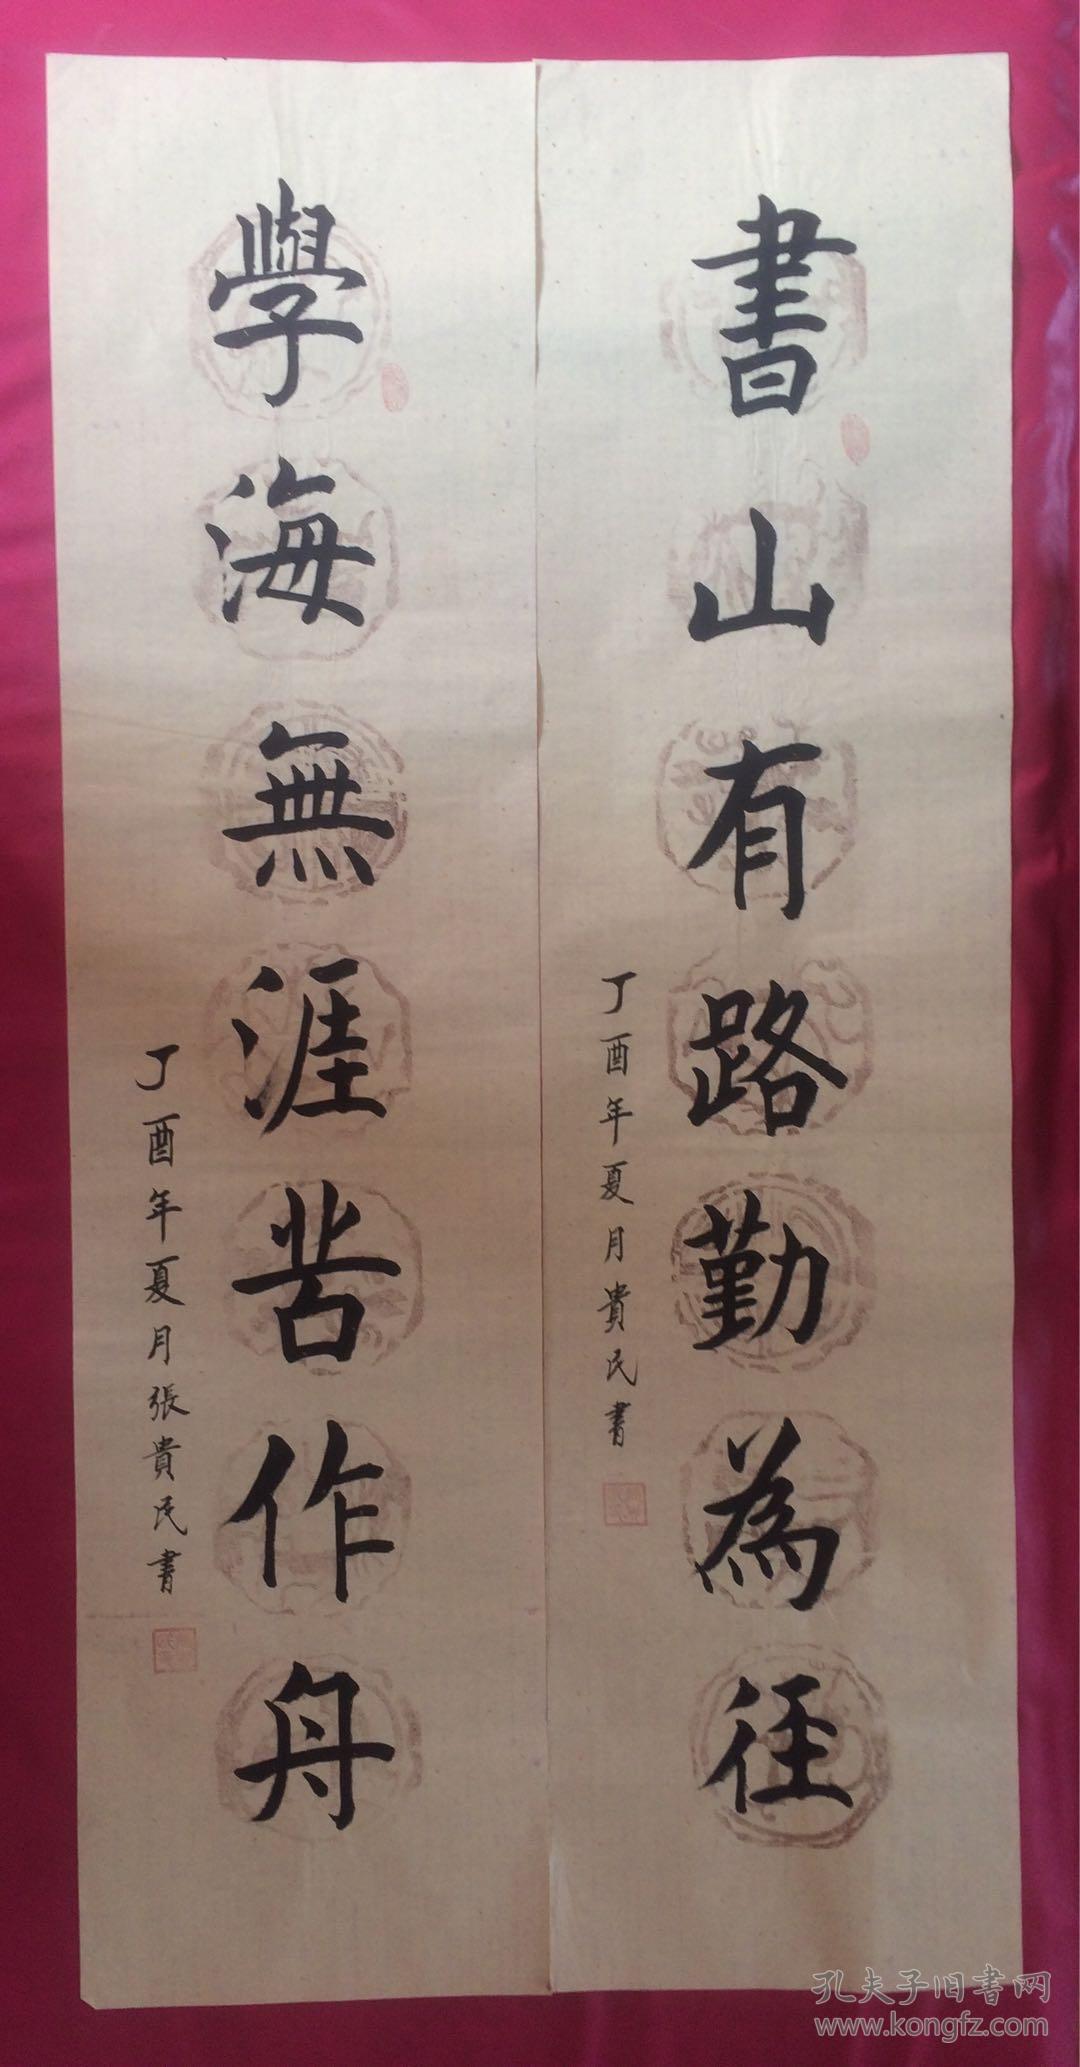 書山有路勤為徑
丁酉年夏月貴民書
學海無涯苦作舟
丁酉年夏月張貴民書
孔夫子旧书网
www.kongfz.com